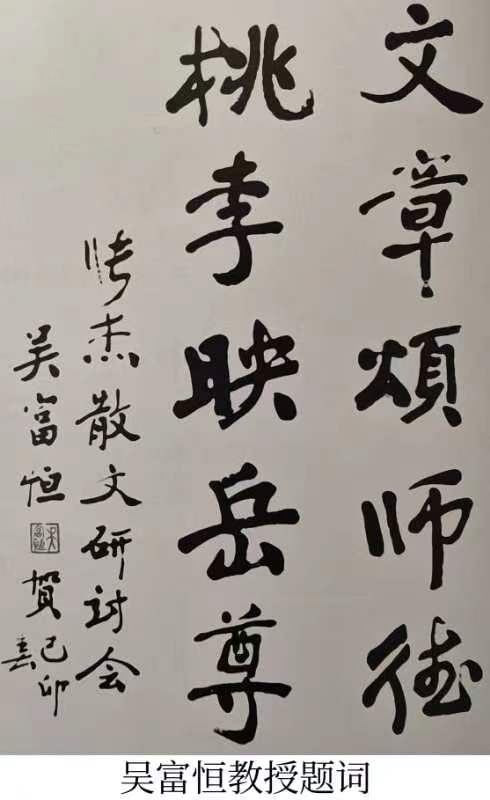 文章頌师德
桃李映岳尊
杰散文研討会
吴富恒 賀 己卯春
吴富恒教授题词